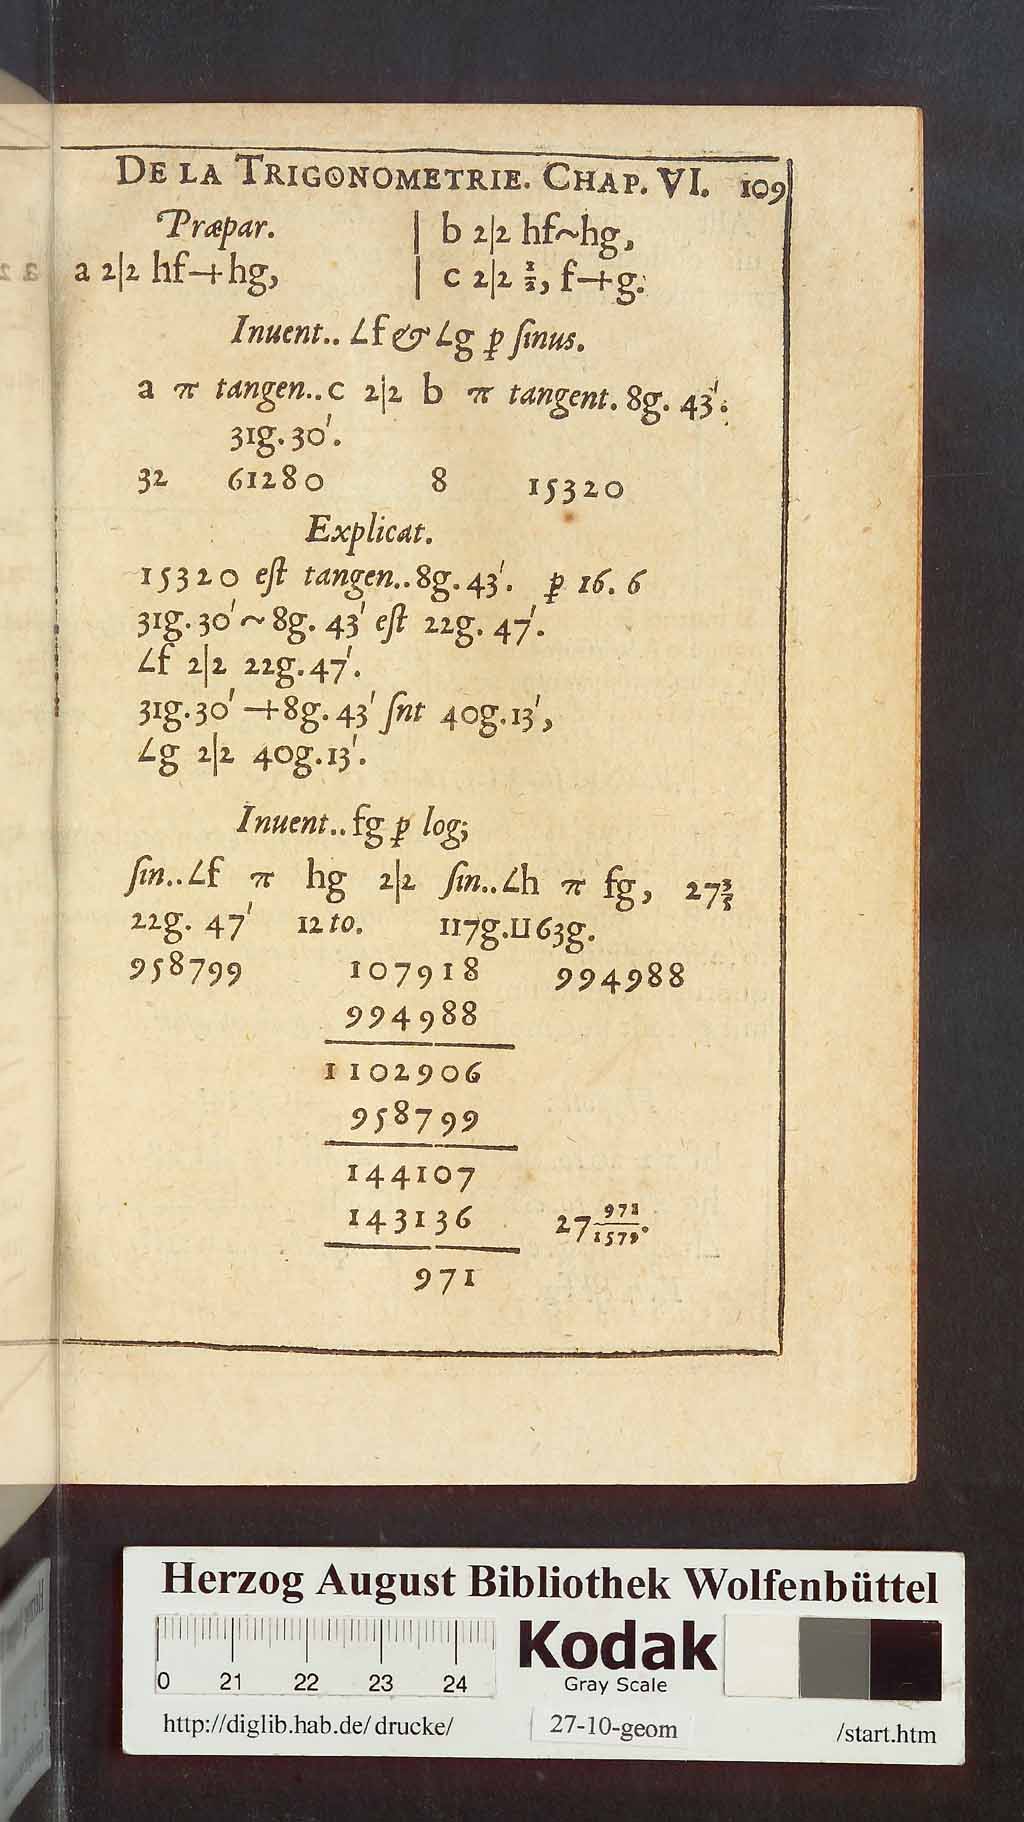 DE LA TRIGONOMETRIE. CHAP. VI. 109
Præpar. | b 2|2 hf~hg,
a 2|2 hf+hg, | c 2|2 ½, f+g.
Inuent.. ∠f & ∠g ꝑ ſinus.
a π tangen.. c 2|2 b π tangent. 8g. 43'.
31g. 30'.
32 61280 8 15320
Explicat.
15320 eſt tangen.. 8g. 43'. ꝑ 16. 6
31g. 30' ~ 8g. 43' eſt 22g. 47'.
∠f 2|2 22g. 47'.
31g. 30' + 8g. 43' ſnt 40g. 13',
∠g 2|2 40g. 13'.
Inuent.. fg ꝑ log;
ſin.. ∠f π hg 2|2 ſin.. ∠h π fg, 27⅗
22g. 47' 12 to. 117g. ⊔ 63g.
958799 107918 994988
994988
1102906
958799
144107
143136 27 971/1579.
971
Herzog August Bibliothek Wolfenbüttel
0 21 22 23 24
Kodak
Gray Scale
http://diglib.hab.de/drucke/ 27-10-geom /start.htm